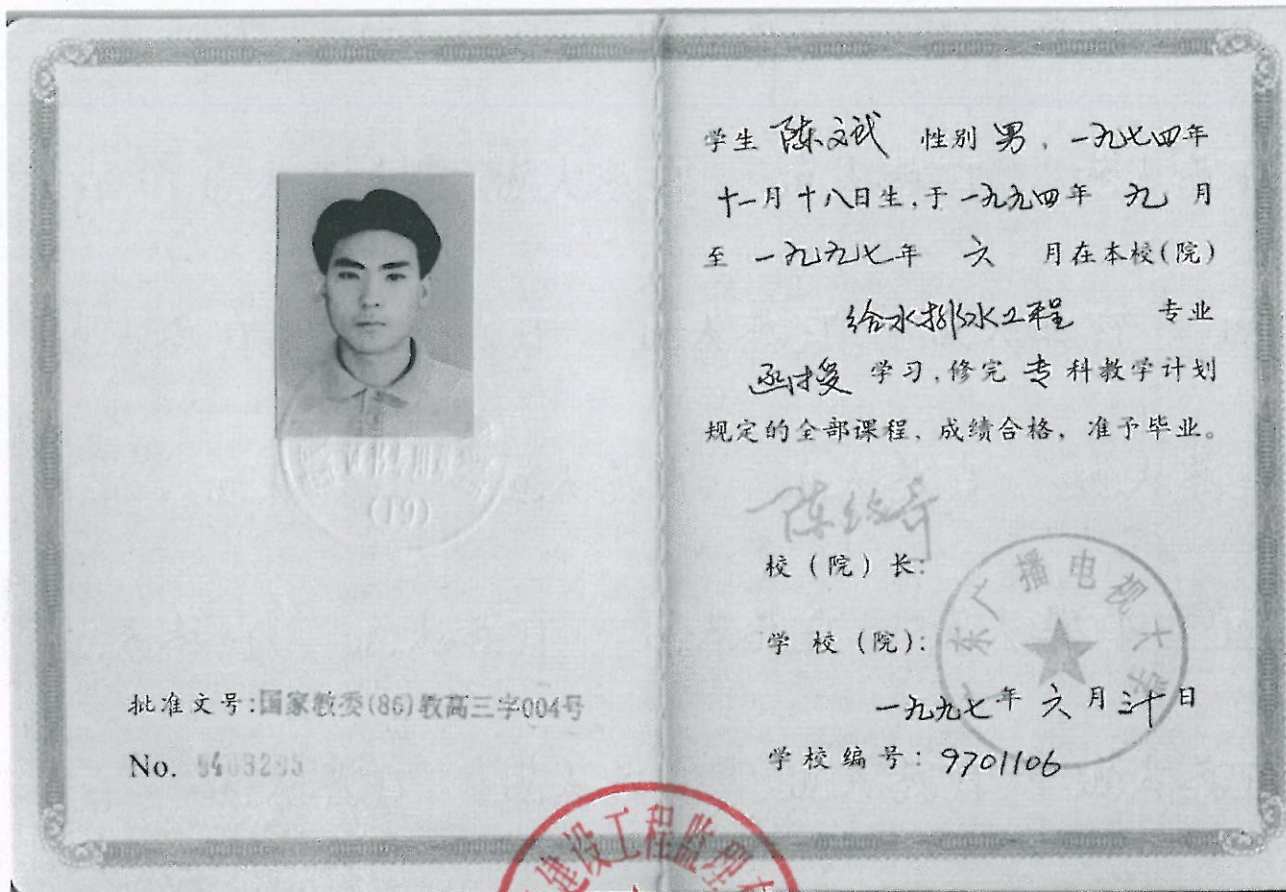 批准文号:国家教委(86)教高三字004号
No.
学生 陈文武 性别 男,一九七四年
十一月十八日生,于一九九四年 九 月
至 一九九七年 六 月在本校(院)
给水排水工程 专业
函授 学习,修完 专 科教学计划
规定的全部课程,成绩合格,准予毕业。
校(院)长:
学校(院):
广东广播电视大学
一九九七年 六 月 三十 日
学校编号:9701106
建设工程监理有